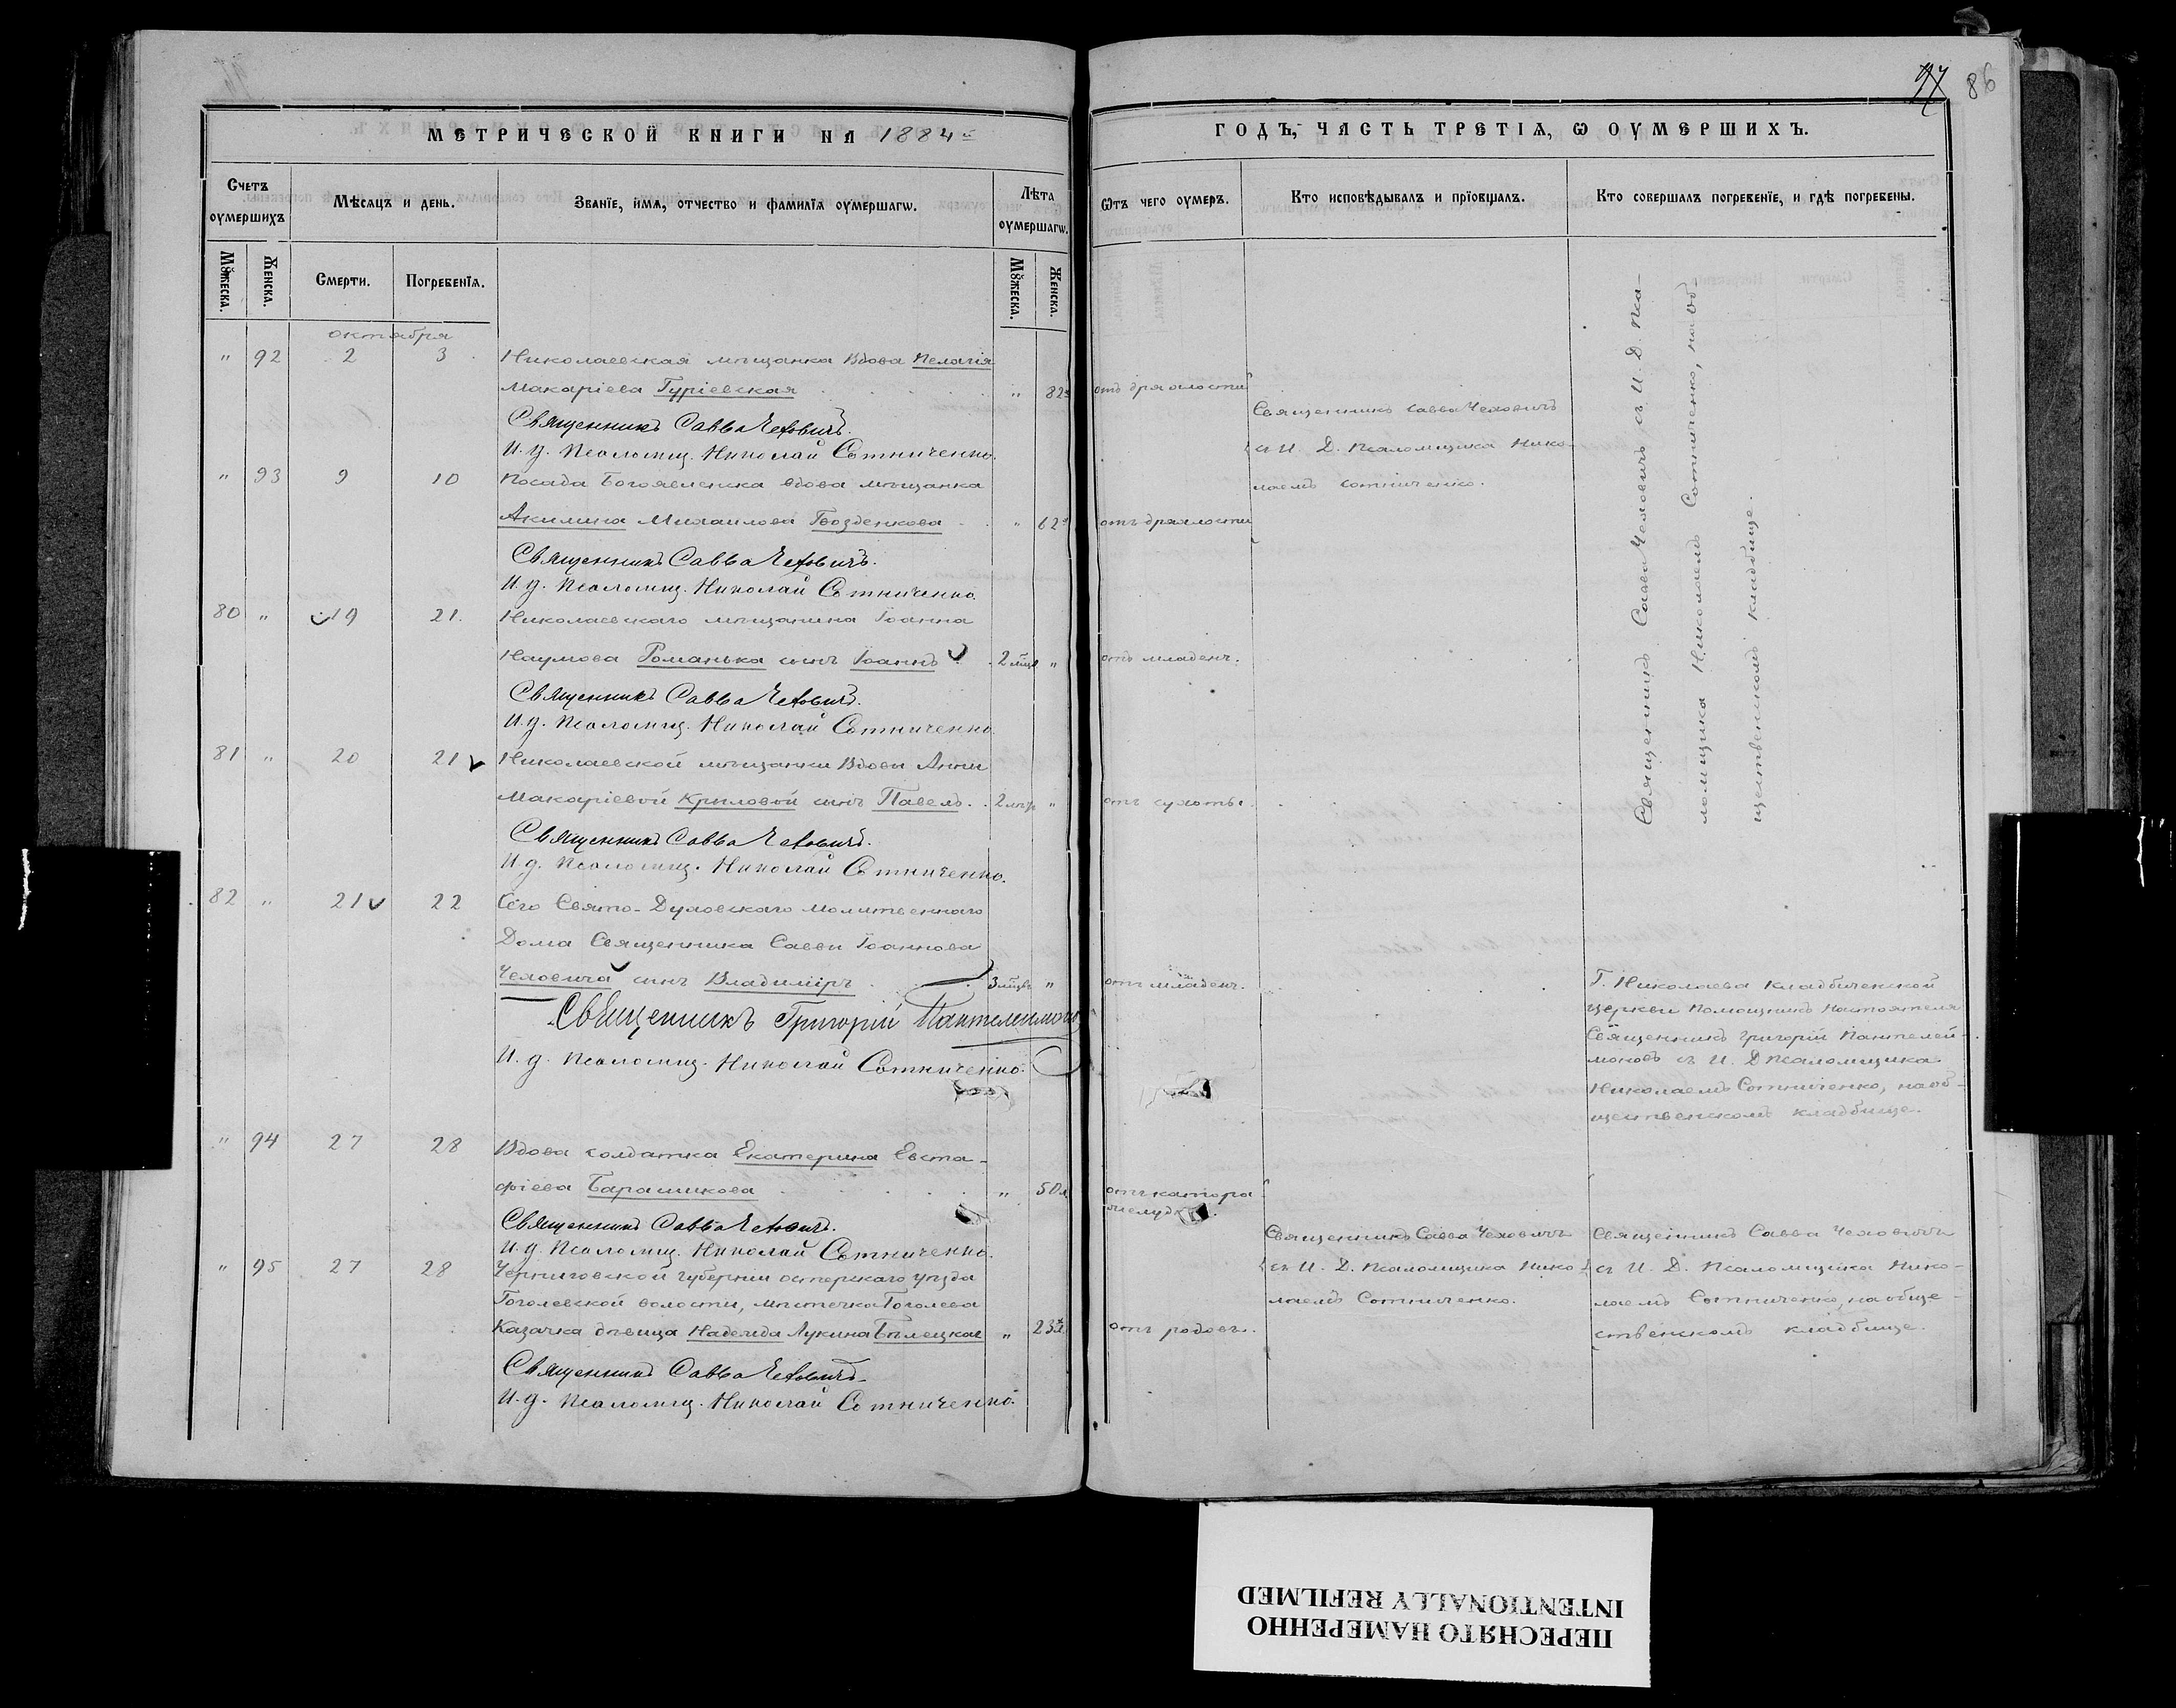 97 86
МЕТРИЧЕСКОЙ КНИГИ НА 1884 й
ГОДЪ, ЧАСТЬ ТРЕТІѦ, Ѡ ОУМЕРШИХЪ.
Счетъ оумершихъ
Мѣсѧцъ и день.
Званїе, имѧ, отчество и фамилїѧ оумершагѡ.
Лѣта оумершагѡ.
Ѿтъ чего оумеръ.
Кто исповѣдывалъ и прїобщалъ.
Кто совершалъ погребенїе, и гдѣ погребены.
Мꙋжеска. Женска. Смерти. Погребенїѧ. Мꙋжеска. Женска.
октября
" 92 2 3 Николаевская мѣщанка Вдова Пелагія
Макаріева Гуріевская " 82 отъ дряхлости
Священникъ Савва Чеховичъ.
И. д. Псаломщ. Николай Сотниченко.
Священникъ Савва Чеховичъ
съ И. Д. Псаломщика Нико-
лаемъ Сотниченко.
" 93 9 10 Посада Богоявленска вдова мѣщанка
Акилина Михаилова Гвозденкова " 62 отъ дряхлости
Священникъ Савва Чеховичъ.
И. д. Псаломщ. Николай Сотниченко.
80 " 19 21 Николаевскаго мѣщанина Іоанна
Наумова Романька сынъ Іоаннъ 2 мѣс. " отъ младенч.
Священникъ Савва Чеховичъ.
И. д. Псаломщ. Николай Сотниченко.
81 " 20 21 Николаевской мѣщанки Вдовы Анны
Макаріевой Крыловой сынъ Павелъ. 2 " отъ сухоты
Священникъ Савва Чеховичъ.
И. д. Псаломщ. Николай Сотниченко.
Священникъ Савва Чеховичъ съ И. Д. Пса-
ломщика Николаемъ Сотниченко, на об-
щественномъ кладбище.
82 " 21 22 Сего Свято-Духовскаго Молитвеннаго
Дома Священника Саввы Іоаннова
Чеховича сынъ Владиміръ 3 мѣс. " отъ младенч.
Священникъ Григорій Пантелеимоновъ
И. д. Псаломщ. Николай Сотниченко.
Г. Николаева Кладбищенской
церкви Помощникъ Настоятеля
Священникъ Григорій Пантелей-
моновъ съ И. Д Псаломщика
Николаемъ Сотниченко, на об-
щественномъ кладбище.
" 94 27 28 Вдова солдатка Екатерина Евста-
фіева Барашикова " 50 л отъ катора
Священникъ Савва Чеховичъ.
И. д. Псаломщ. Николай Сотниченко.
" 95 27 28 Черниговской губерніи остерскаго уѣзда
Гоголевской волости, мѣстечка Гоголева
Казачка дѣвица Надежда Лукина Бѣлецкая " 23 отъ родовъ.
Священникъ Савва Чеховичъ.
И. д. Псаломщ. Николай Сотниченко.
Священникъ Савва Чеховичъ
съ И. Д. Псаломщика Нико-
лаемъ Сотниченко.
Священникъ Савва Чеховичъ
съ И. Д. Псаломщика Нико-
лаемъ Сотниченко, на обще-
ственномъ кладбище.
ПЕРЕСНЯТО НАМЕРЕННО
INTENTIONALLY REFILMED